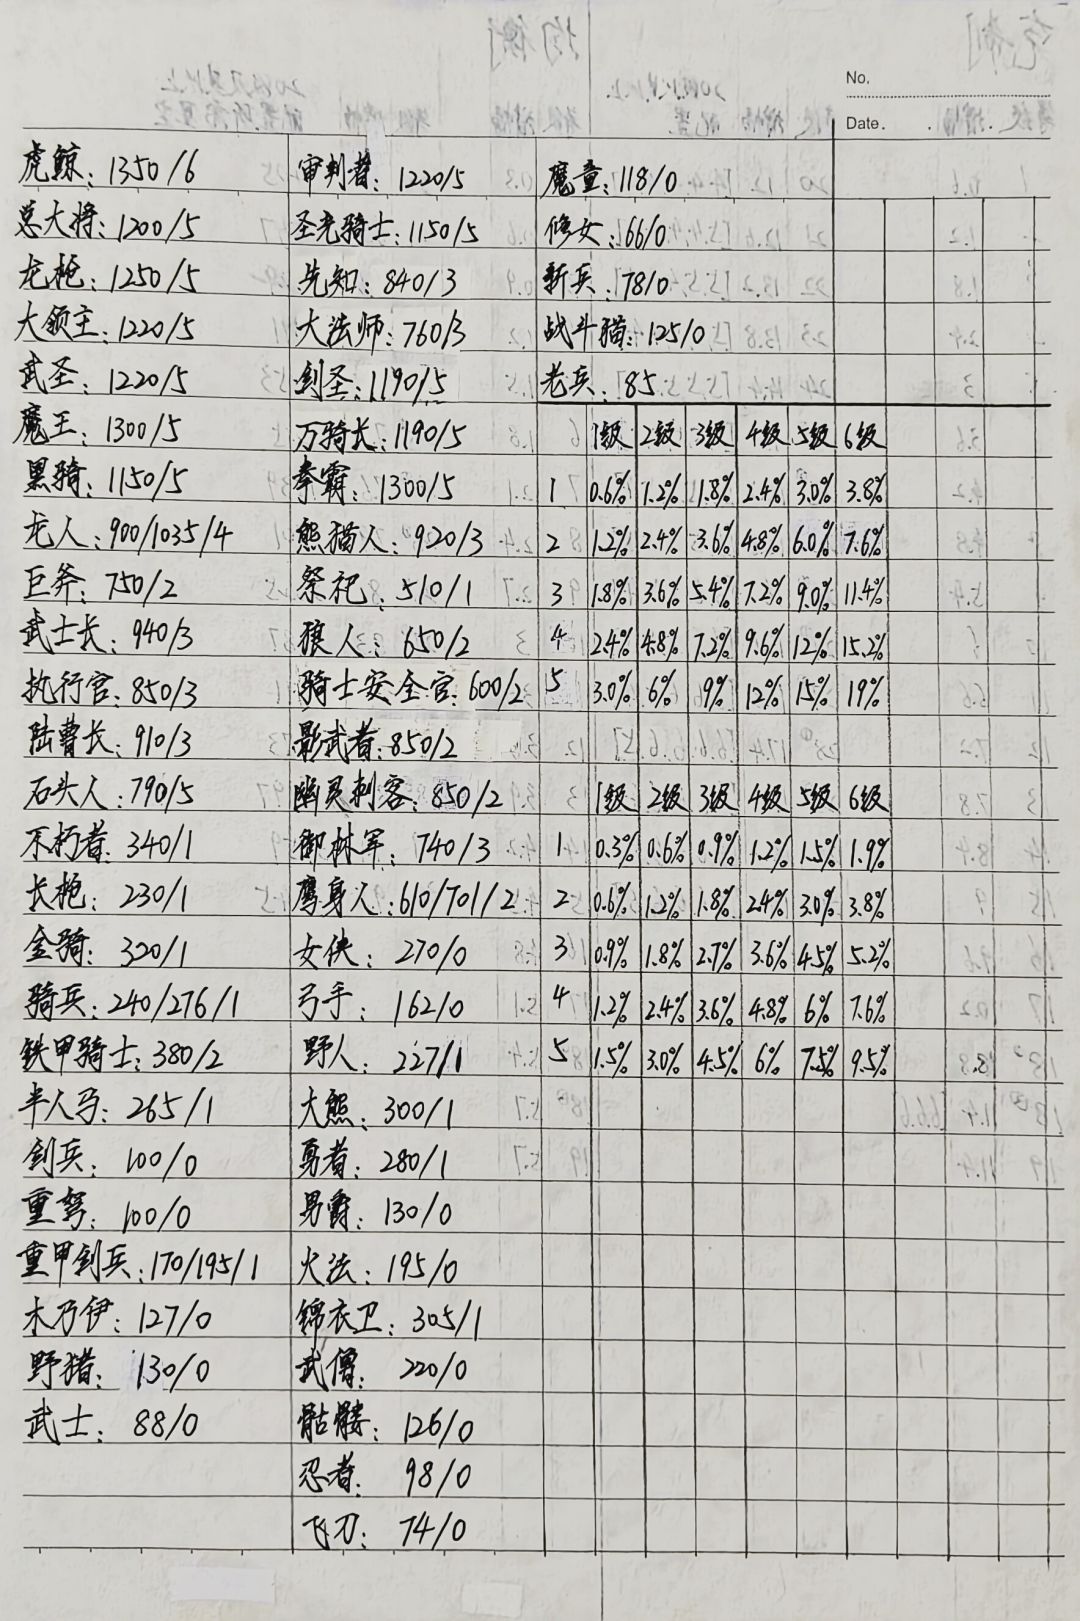 No.
Date.
虎鲸：1350/6
总大将：1200/5
龙枪：1250/5
大领主：1220/5
武圣：1220/5
魔王：1300/5
黑骑：1150/5
龙人：900/1035/4
巨斧：750/2
武士长：940/3
执行官：850/3
陆曹长：910/3
石头人：790/5
不朽者：340/1
长枪：230/1
金骑：320/1
骑兵：240/276/1
铁甲骑士：380/2
半人马：265/1
剑兵：100/0
重弩：100/0
重甲剑兵：170/195/1
木乃伊：127/0
野猪：130/0
武士：88/0
审判者：1220/5
圣光骑士：1150/5
先知：840/3
大法师：760/3
剑圣：1190/5
万骑长：1190/5
拳霸：1300/5
熊猫人：920/3
祭祀：510/1
狼人：650/2
骑士安全官：600/2
影武者：850/2
幽灵刺客：850/2
御林军：740/3
鹰身人：610/701/2
女侠：270/0
弓手：162/0
野人：227/1
大熊：300/1
勇者：280/1
男爵：130/0
火法：195/0
锦衣卫：305/1
武僧：220/0
骷髅：126/0
忍者：98/0
飞刀：74/0
魔童：118/0
修女：66/0
新兵：78/0
战斗猫：125/0
老兵：85
1级 2级 3级 4级 5级 6级
1 0.6% 1.2% 1.8% 2.4% 3.0% 3.8%
2 1.2% 2.4% 3.6% 4.8% 6.0% 7.6%
3 1.8% 3.6% 5.4% 7.2% 9.0% 11.4%
4 2.4% 4.8% 7.2% 9.6% 12% 15.2%
5 3.0% 6% 9% 12% 15% 19%
1级 2级 3级 4级 5级 6级
1 0.3% 0.6% 0.9% 1.2% 1.5% 1.9%
2 0.6% 1.2% 1.8% 2.4% 3.0% 3.8%
3 0.9% 1.8% 2.7% 3.6% 4.5% 5.2%
4 1.2% 2.4% 3.6% 4.8% 6% 7.6%
5 1.5% 3.0% 4.5% 6% 7.5% 9.5%